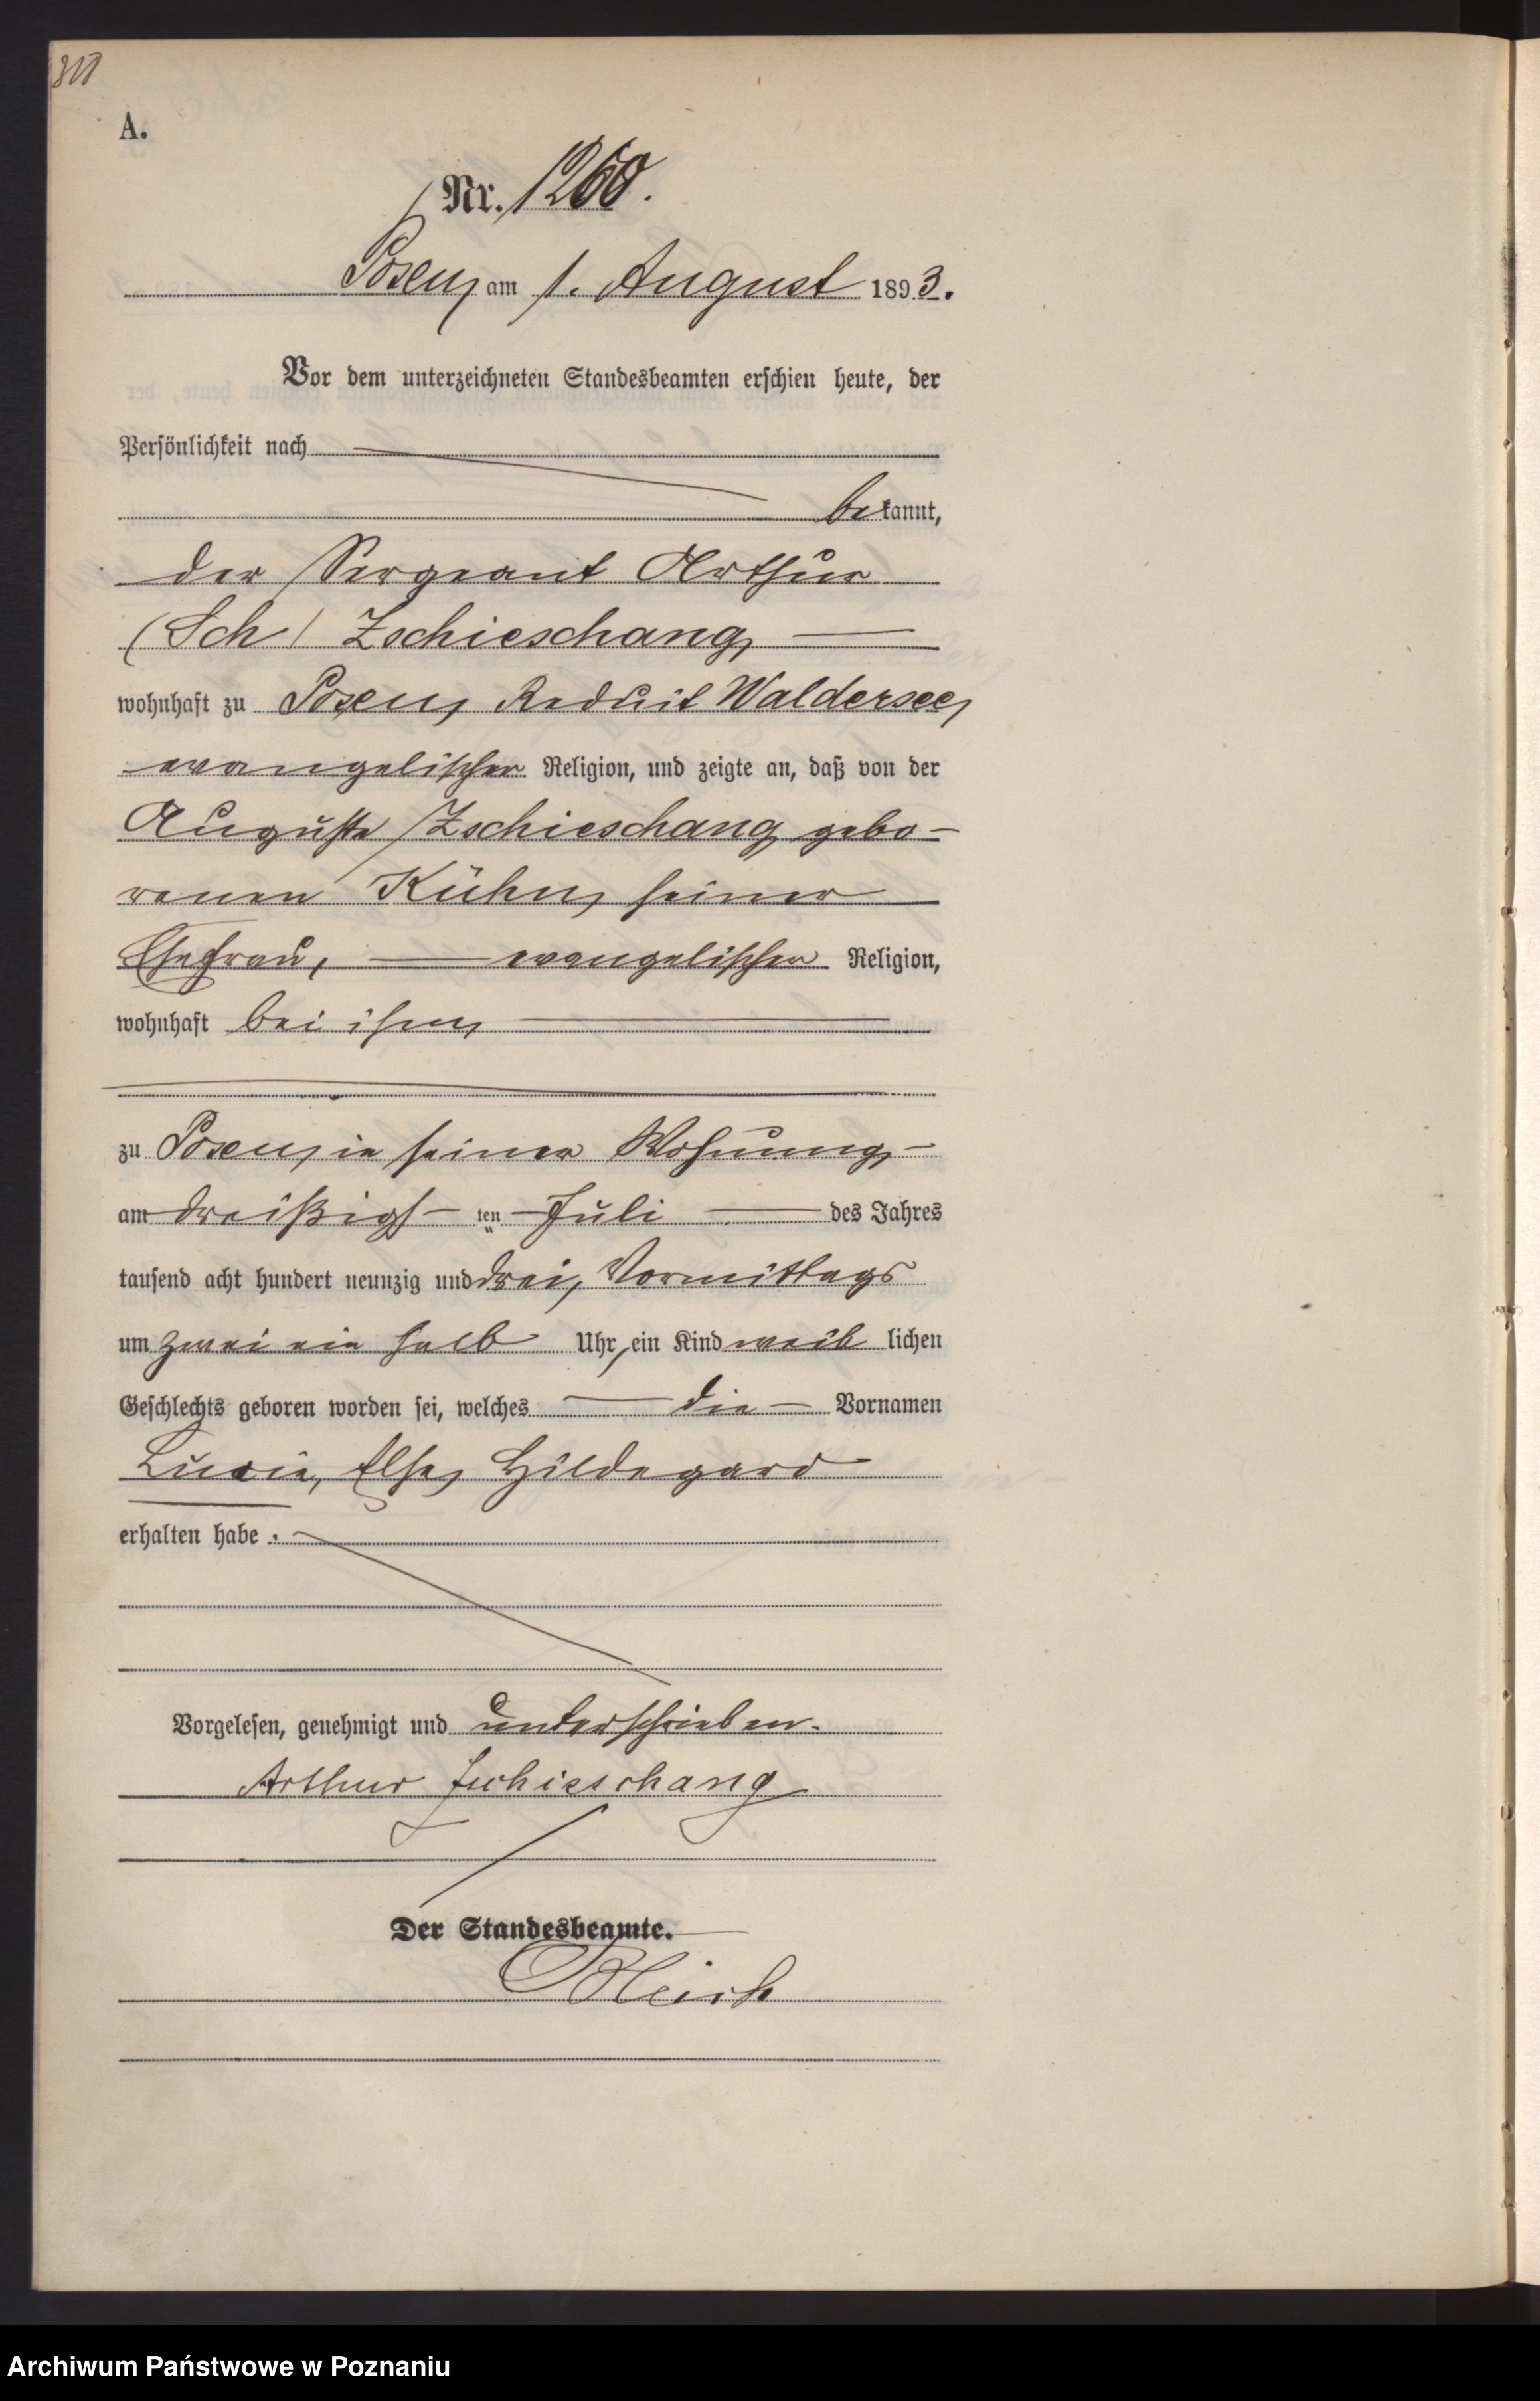 A.
Nr. 1260.
Posen, am 1. August 1893.
Vor dem unterzeichneten Standesbeamten erschien heute, der
Persönlichkeit nach
bekannt,
der Sergeant Arthur
(Sch) Zschieschang,
wohnhaft zu Posen, Reduit Waldersee,
evangelischer Religion, und zeigte an, daß von der
Auguste Zschieschang gebo-
renen Kühn, seiner
Ehefrau, evangelischer Religion,
wohnhaft bei ihm,
zu Posen, in seiner Wohnung,
am dreißigsten Juli des Jahres
tausend acht hundert neunzig und drei, Vormittags
um zwei ein halb Uhr, ein Kind weiblichen
Geschlechts geboren worden sei, welches die Vornamen
Lucie, Else, Hildegard
erhalten habe.
Vorgelesen, genehmigt und unterschrieben.
Arthur Zschieschang
Der Standesbeamte.
Archiwum Państwowe w Poznaniu